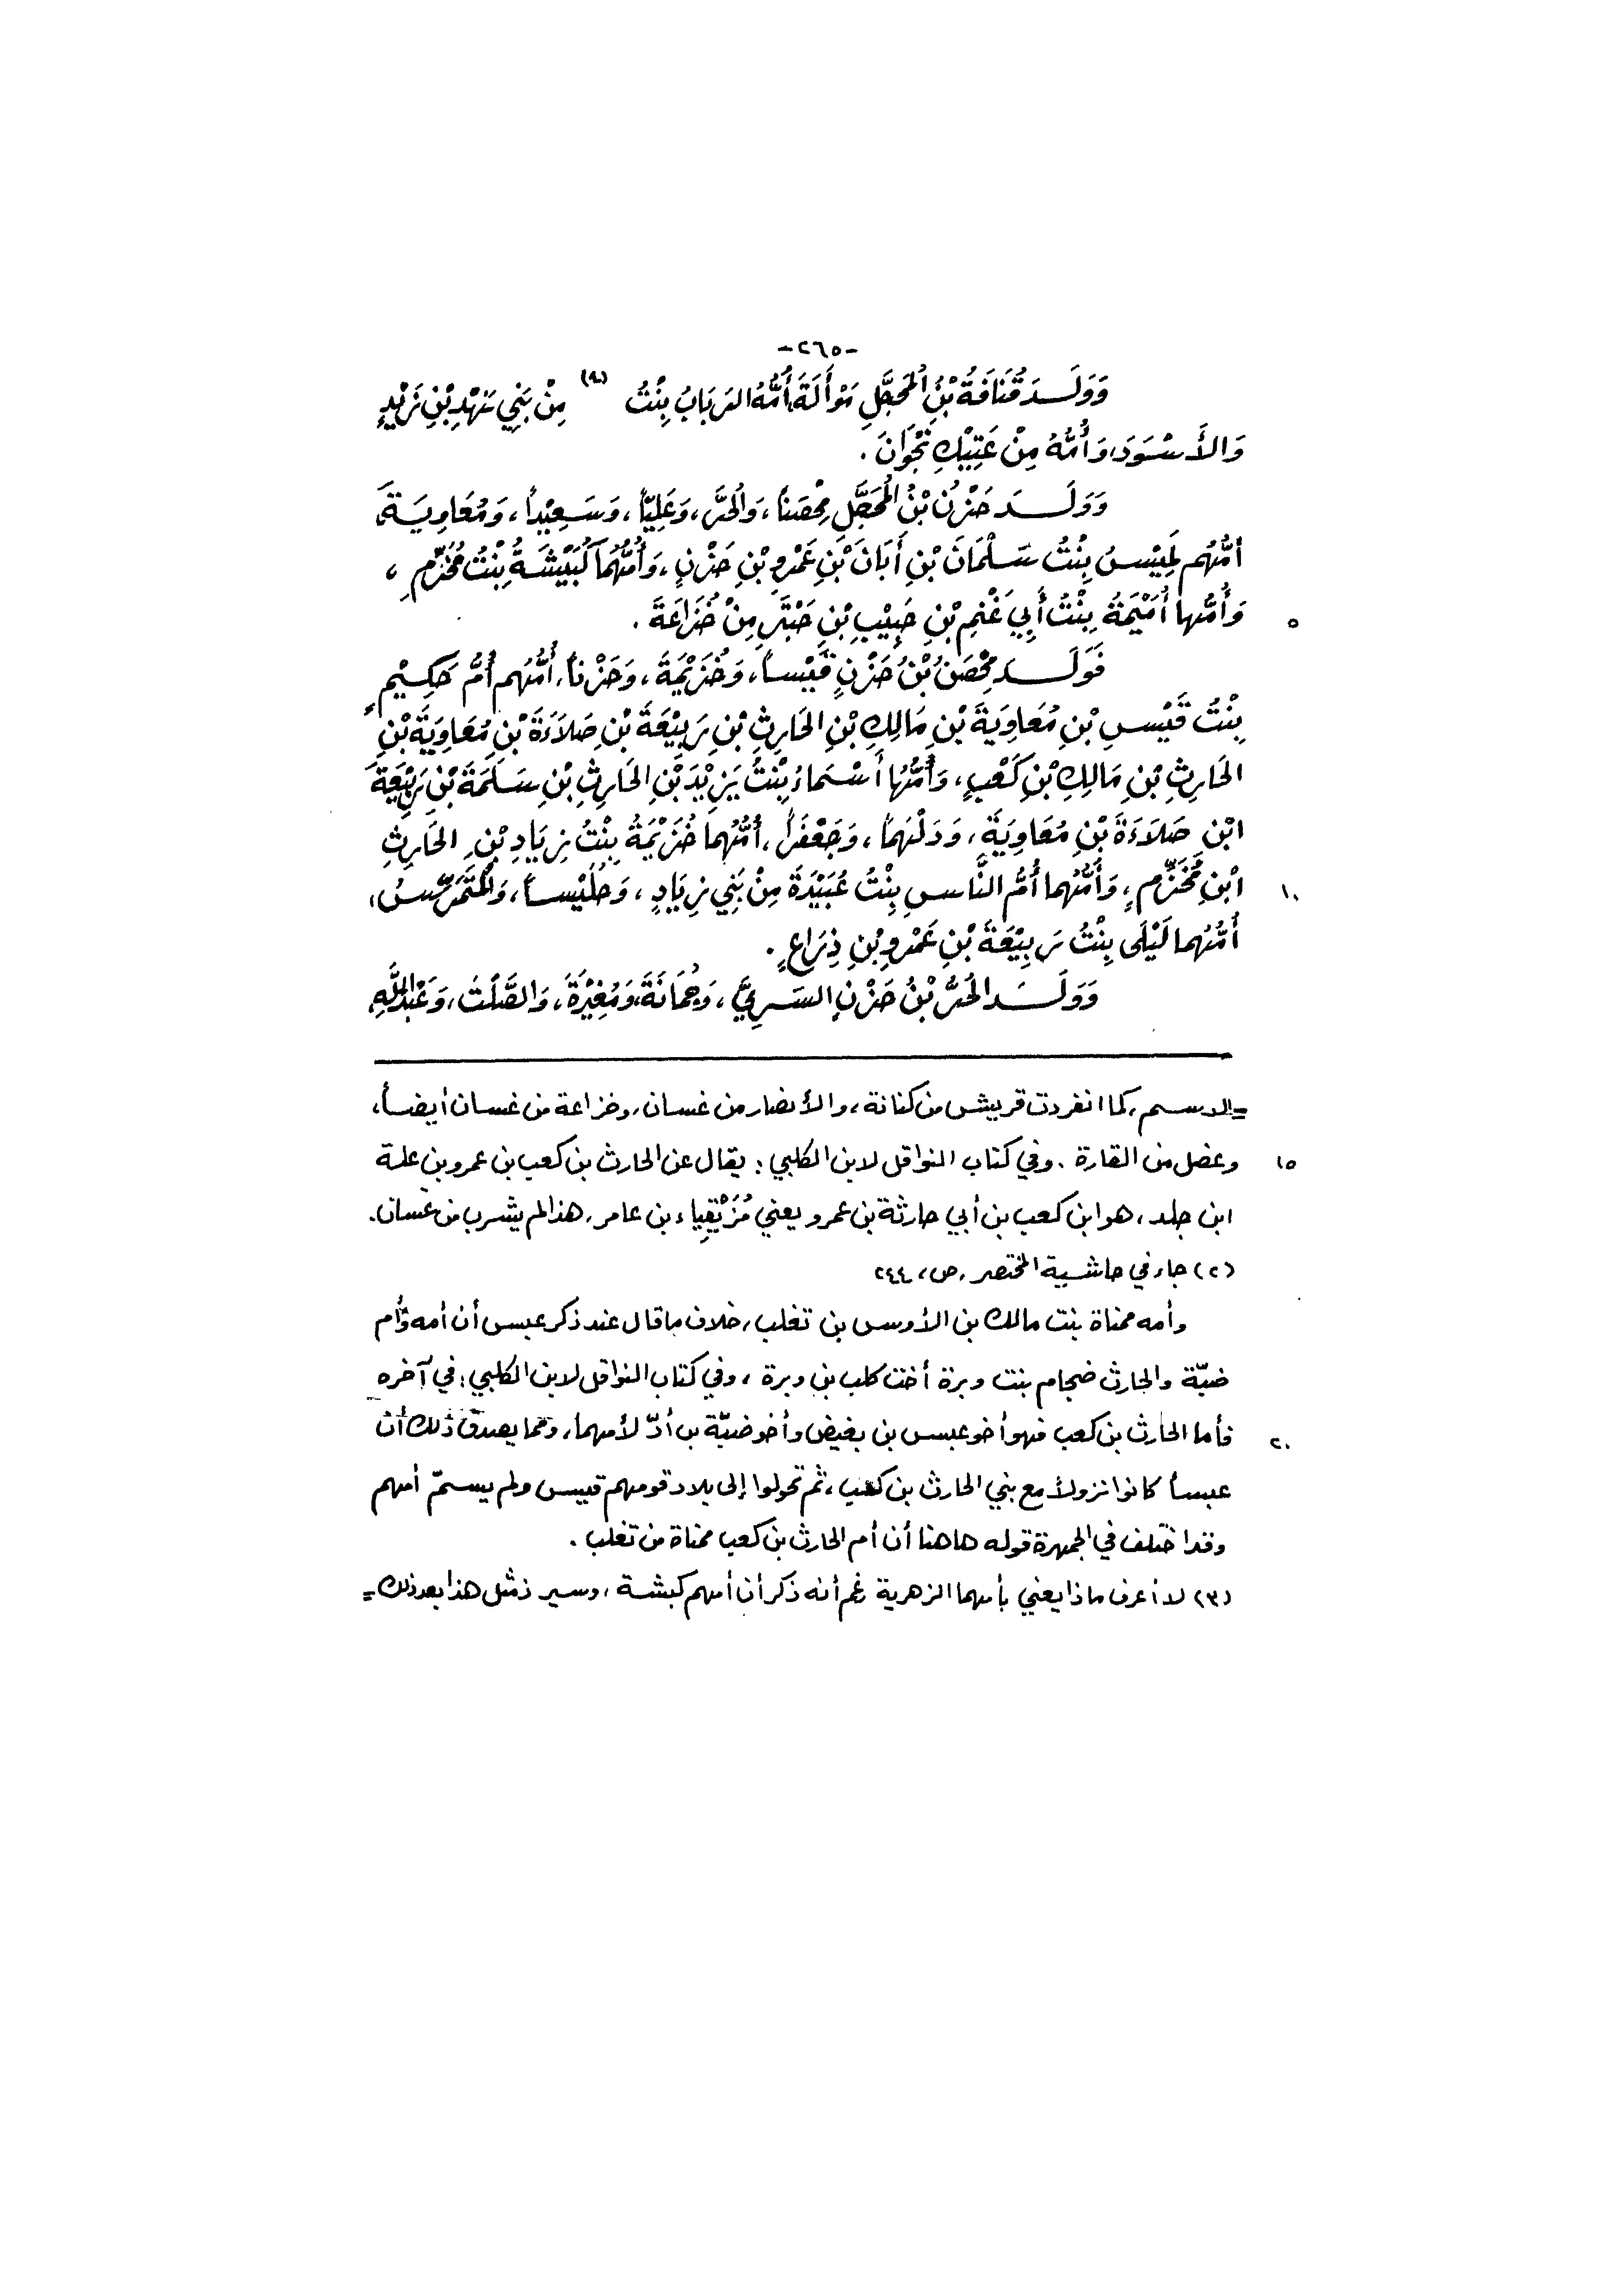 -٢٦٥-
وَوَلَــدَ قُنَافَةُ بْنُ المُحَجَّلِ مَوْأَلَةَ، أُمُّهُ الرَبَابُ بِنْتُ (٩) مِنْ بَنِي نَهْدِ بْنِ زَيْدٍ
وَالأَسْوَدَ، وَأُمُّهُ مِنْ عَتِيْكِ نَجْرَانَ .
وَوَلَــدَ حَزْنُ بْنُ المُحَجَّلِ مِحْصَناً، وَالحُرَّ، وَعَلِيّاً، وَسَعِيْداً، وَمُعَاوِيَةَ،
أُمُّهُم لَمِيْسُ بِنْتُ سَلْمَانَ بْنِ أَبَانَ بْنِ عَمْرِو بْنِ حَزْنٍ، وَأُمُّهُمَا كُبَيْشَةُ بِنْتُ مُخَرِّمٍ ،
٥ وَأُمُّها أُمَيْمَةُ بِنْتُ أَبِي غَنْمِ بْنِ حَبِيْبِ بْنِ حَبْتَرِ مِنْ خُزَاعَةَ .
فَوَلَــدَ مِحْصَنُ بْنُ حَزْنٍ قَيْساً، وَخُزَيْمَةَ، وَحَزْناً، أُمُّهُم أُمُّ حَكِيْمٍ
بِنْتُ قَيْسِ بْنِ مُعَاوِيَةَ بْنِ مَالِكِ بْنِ الحَارِثِ بْنِ رَبِيْعَةَ بْنِ صَلَاءَةَ بْنِ مُعَاوِيَةَ بْنِ
الحَارِثِ بْنِ مَالِكِ بْنِ كَعْبٍ، وَأُمُّهَا أَسْمَاءُ بِنْتُ يَزِيْدَ بْنِ الحَارِثِ بْنِ سَلَمَةَ بْنِ رَبِيْعَةَ
ابْنِ صَلَاءَةَ بْنِ مُعَاوِيَةَ، وَدَلْهَماً، وَجَعْفَراً، أُمُّهُما خُزَيْمَةُ بِنْتُ زِيَادِ بْنِ الحَارِثِ
١٠ ابْنِ مُخَرِّمٍ، وَأُمُّهُما أُمُّ النَّاسِ بِنْتُ عُبَيْدَةَ مِنْ بَنِي زِيَادٍ، وَحُلَيْساً، وَالمُتَمَرِّسُ،
أُمُّهُما لَيْلَى بِنْتُ رَبِيْعَةَ بْنِ عَمْرِو بْنِ ذِرَاعٍ .
وَوَلَــدَ الحُرُّ بْنُ حَزْنٍ السَرِيَّ، وَجُمَانَةَ، وَمُغِيْرَةَ، وَالصَّلْتَ، وَعَبْدَاللَّهِ،
= الاسم، كما انفردت قريش من كنانة، والأنصار من غسان، وخزاعة من غسان أيضاً،
١٥ وعضل من القارة . وفي كتاب النواقل لابن الكلبي : يقال عن الحارث بن كعب بن عمرو بن علة
ابن جلد، هو ابن كعب بن أبي حارثة بن عمرو يعني مُزَيْقِيَاء بن عامر، هذا لم يشرب من غسان.
(٢) جاء في حاشية المختصر، ص، ٢٤٤
وأمه مماة بنت مالك بن الأوس بن تغلب، خلاف ما قال عند ذكر عبس أن أمه وأم
ضبّة والحارث ضجام بنت وبرة أخت كلب بن وبرة، وفي كتاب النواقل لابن الكلبي : في آخره
٢٠ فأما الحارث بن كعب فهو أخو عبس بن بغيض وأخو ضبّة بن أدّ لأمهما، ومما يصدق ذلك أن
عبساً كانوا نزولاً مع بني الحارث بن كعب، ثم تحولوا إلى بلاد قومهم قيس ولم يسمّ أمهم
وقد اختلف في الجمهرة قوله هاهنا أن أم الحارث بن كعب مماة من تغلب .
(٣) لا أعرف ماذا يعني بأمهما الزهرية رغم أنه ذكر أن أمهم كبشة، وسيرد مثل هذا بعد ذلك =